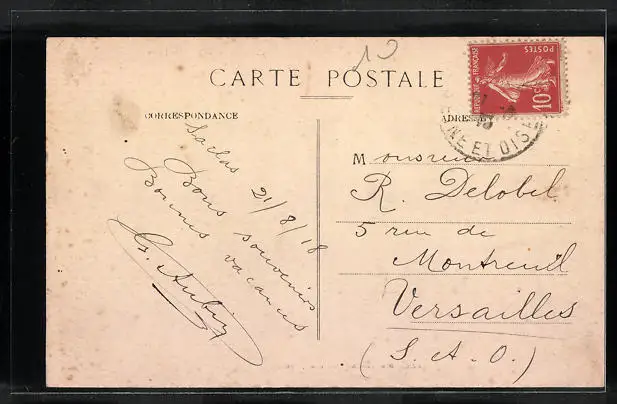 CARTE POSTALE
CORRESPONDANCE
Saclas 21/8/18
Bons souvenirs
Bonnes vacances
G. Aubin
ADRESSE
Monsieur
R. Delobel
5 rue de
Montreuil
Versailles
(S. et O.)
REPUBLIQUE FRANÇAISE
POSTES
10c
NE ET OISE
10